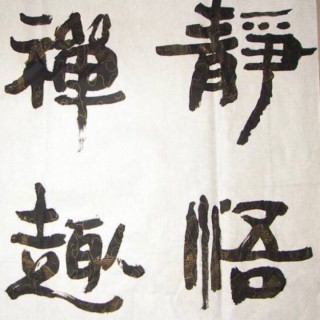 靜悟
禪趣